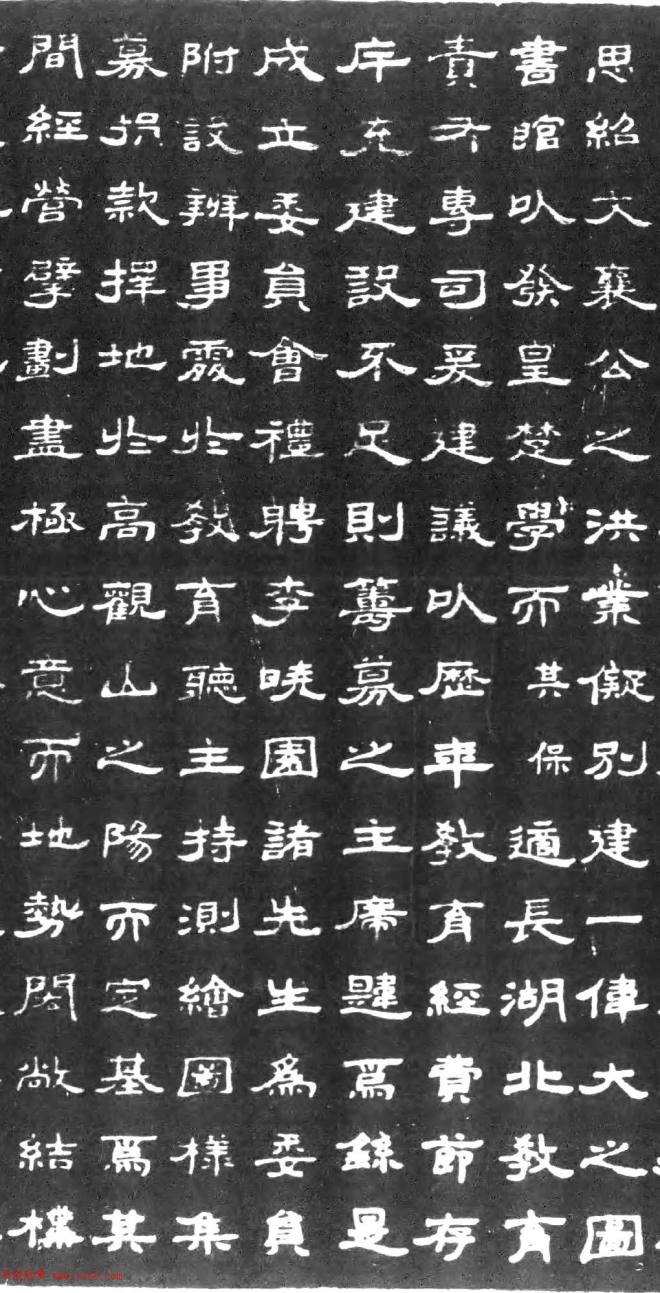 思紹文襄公之洪業儗別建一偉大之圖
書館㕥發皇楚學而其保適長湖北教育
責有專司爰建議㕥歷年教育經費節存
庁充建設不足則籌募之主席韙焉繇是
成立委員會禮聘李曉園諸先生為委員
附設辦事處於教育聽主持測繪圖樣集
募捐款擇地於高觀山之陽而定基焉其
間經營擘劃盡極心意而地勢閎敞結構
www.yac8.com